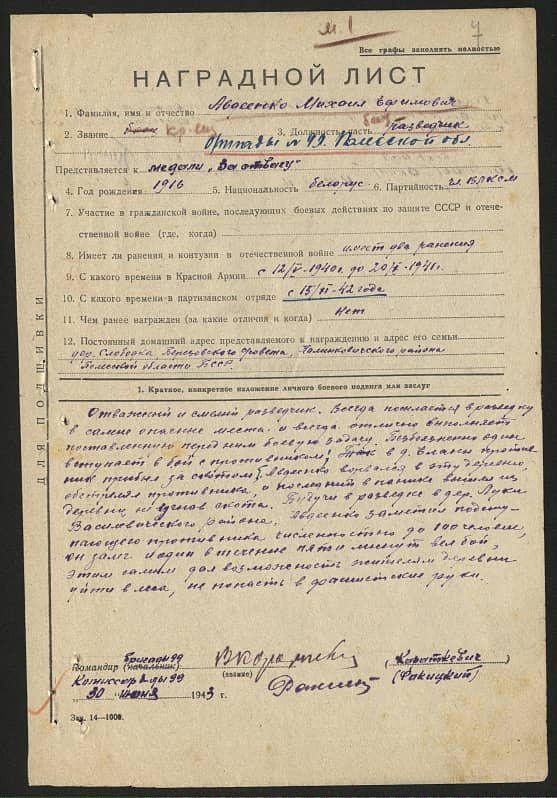 м. 1
7
Все графы заполнять полностью
НАГРАДНОЙ ЛИСТ
1. Фамилия, имя и отчество Авсеенко Михаил Ефимович
2. Звание кр-ец 3. Должность, часть Разведчик
бригады № 99 Полесской обл
Представляется к медали „За отвагу“
4. Год рождения 1916 5. Национальность белорус 6. Партийность чл. ВЛКСМ
7. Участие в гражданской войне, последующих боевых действиях по защите СССР и отече-
ственной войне (где, когда)
8. Имеет ли ранения и контузии в отечественной войне имеет два ранения
9. С какого времени в Красной Армии с 12/V-1940г. до 20/X-1941г.
10. С какого времени в партизанском отряде с 15/VI-42 года
11. Чем ранее награжден (за какие отличия и когда) Нет
12. Постоянный домашний адрес представляемого к награждению и адрес его семьи
дер. Слободка, с/совета, Калинковичского района
Полесской области БССР.
1. Краткое, конкретное изложение личного боевого подвига или заслуг
Отважный и смелый разведчик. Всегда посылается в разведку
в самые опасные места и всегда отлично выполняет
поставленную перед ним боевую задачу. один
вступает в бой с противником. в д. против-
ник прибыл за скотом. Авсеенко ворвался в эту деревню,
обстрелял противника, и последний в панике бежал из
деревни, не угнав скота. Будучи в разведке в дер. Луки
Василевичского района, Авсеенко заметил подсту-
пающего противника численностью до 100 человек,
он залег и один в течение пяти минут вел бой,
этим самым дал возможность жителям деревни
уйти в леса, не попасть в фашистские руки.
ДЛЯ ПОДШИВКИ
бригады 99
Командир (начальник) (Короткевич)
(звание)
Комиссар б-ды 99 (Ракицкий)
„30“ июня 1943 г.
Зак. 14—1000.